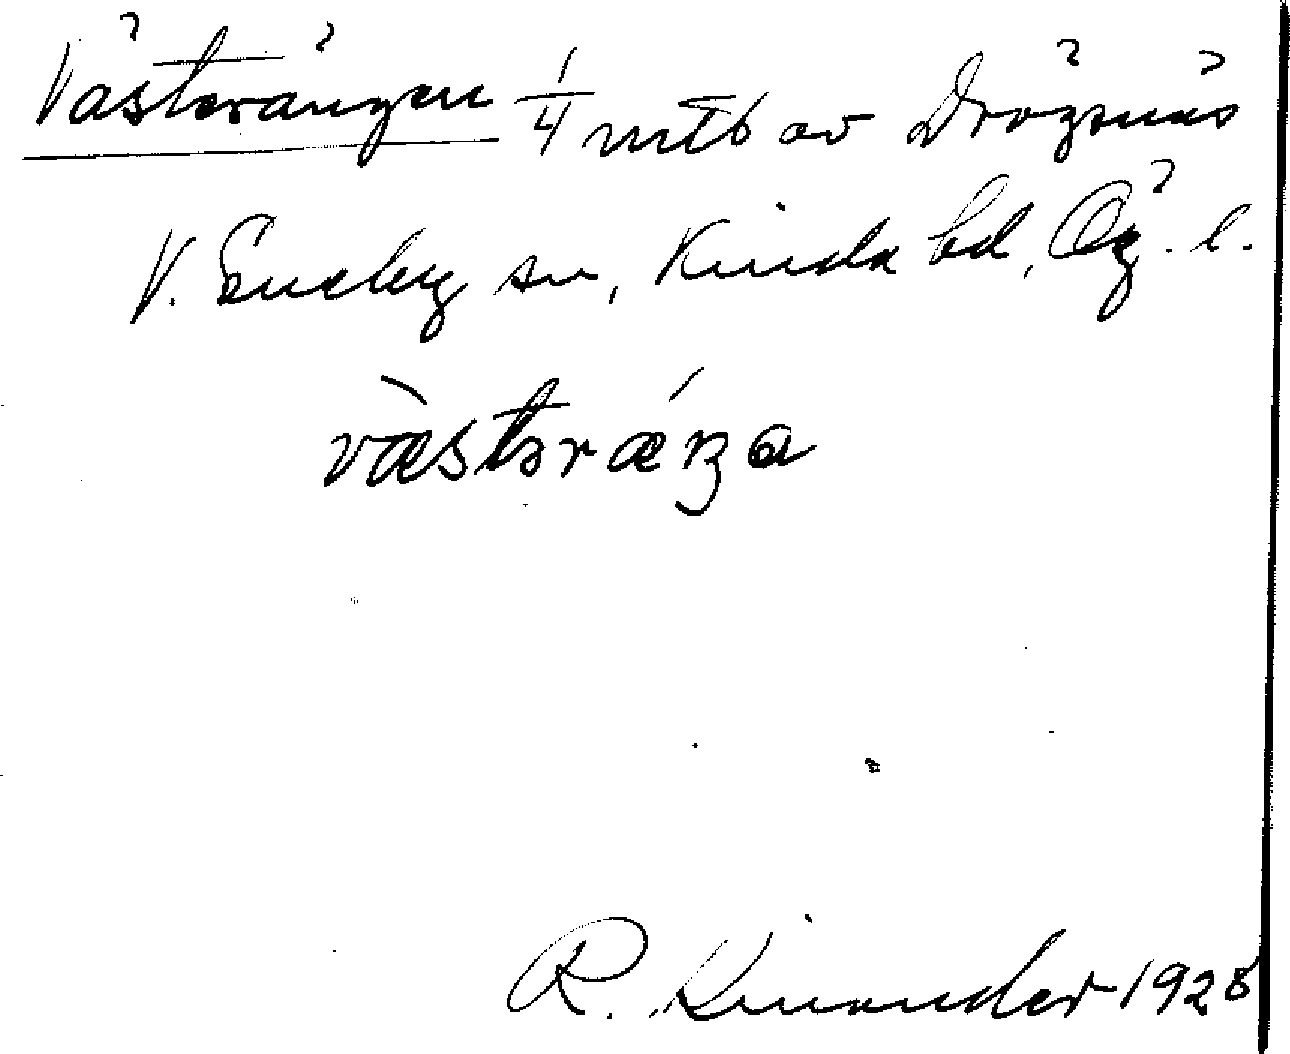 Västerängen 1/4 mtb av Drögsnäs
V. Eneby sn, Kinda hd, Ög. l.
vàstəræ´ŋa
R. Kinander 1928